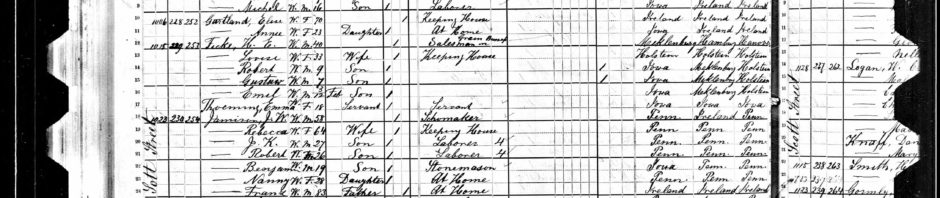 Son Laborer Iowa Ireland Ireland
1006 228 252 Gartland, Elise W. F. 70 1 Keeping House Ireland Ireland Ireland
Annie W. F. 23 Daughter 1 At Home Iowa Ireland Ireland
1015 229 253 W. M. 40 1 Salesman in Mecklenburg Hamburg Hanover
Louise W. F. 33 Wife 1 Keeping House Holstein Holstein Holstein
Robert W. M. 9 Son 1 Iowa Mecklenburg Holstein
Gustav W. M. 7 Son 1 Iowa Mecklenburg Holstein
Emil W. M. Son 1 Iowa Mecklenburg Holstein
Thoening, Emma F. 18 Servant 1 Servant Iowa Iowa Iowa
1020 230 254 Jamison, J. W. W. M. 58 1 Schomaker Penn Ireland Penn
Rebecca W. F. 64 Wife 1 Keeping House Penn Penn Penn
J. K. W. M. 27 Son 1 Laborer 4 Penn. Penn. Penn.
Robert W. M. 26 Son 1 Laborer 4 Penn. Penn. Penn.
Benjamin W. M. 19 Son 1 Stonemason Iowa Penn Penn
Nanny W. F. 28 Daughter 1 At Home Penn Penn Penn
Frank W. M. 83 Father 1 At Home Ireland Ireland Ireland
Scott Street
1028 227 262 Logan, W. C.
Knapp, Dan
Mary
1115 238 263 Smith, H
1123 239 264 Gormly,